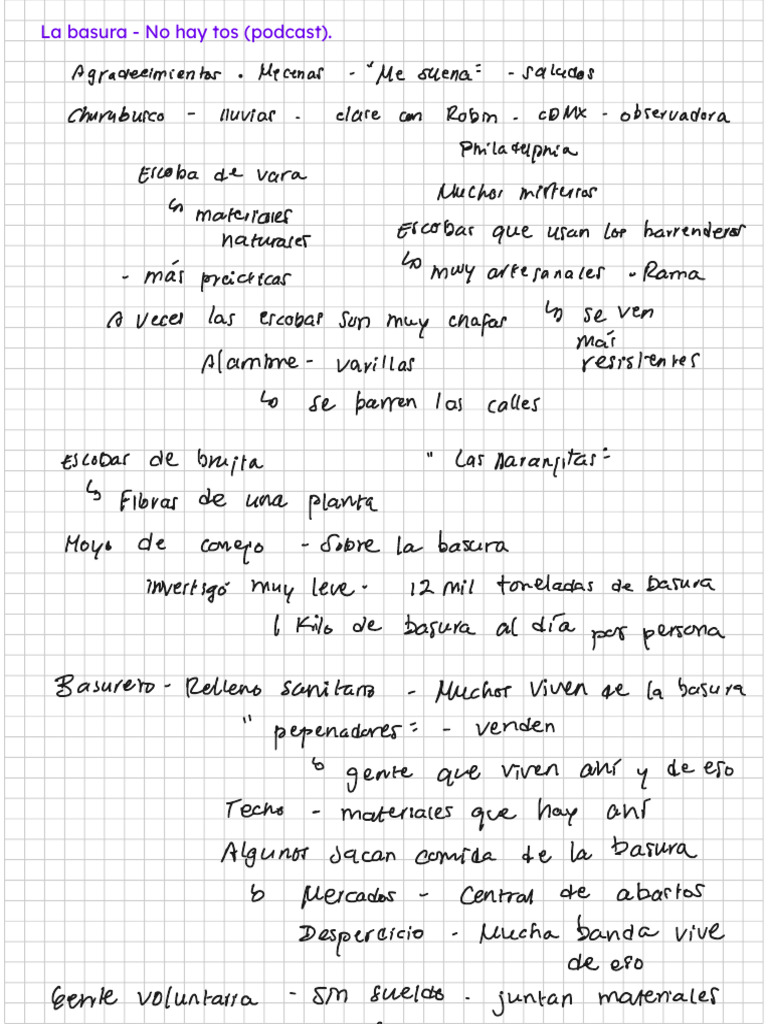 La basura - No hay tos (podcast).
Agradecimientos • Mecenas - "Me suena" - saludos
Churubusco - lluvias - clase con Robin - CDMX - observadora
Philadelphia
Escoba de vara
Muchos misterios
↳ materiales naturales
Escobas que usan los barrenderos
- más prácticas
↳ muy artesanales - Rama
A veces las escobas son muy chafas
↳ se ven más resistentes
Alambre - varillas
↳ se barren las calles
Escobas de brujita
"Las naranjitas"
↳ Fibras de una planta
Moyo de conejo - Sobre la basura
investigó muy leve - 12 mil toneladas de basura
1 Kilo de basura al día por persona
Basurero - Relleno sanitario - Muchos viven de la basura
"pepenadores" - venden
↳ gente que viven ahí y de eso
Techo - materiales que hay ahí
Algunos sacan comida de la basura
↳ Mercados - Central de abastos
Desperdicio - Mucha banda vive de eso
Gente voluntaria - sin sueldo - juntan materiales